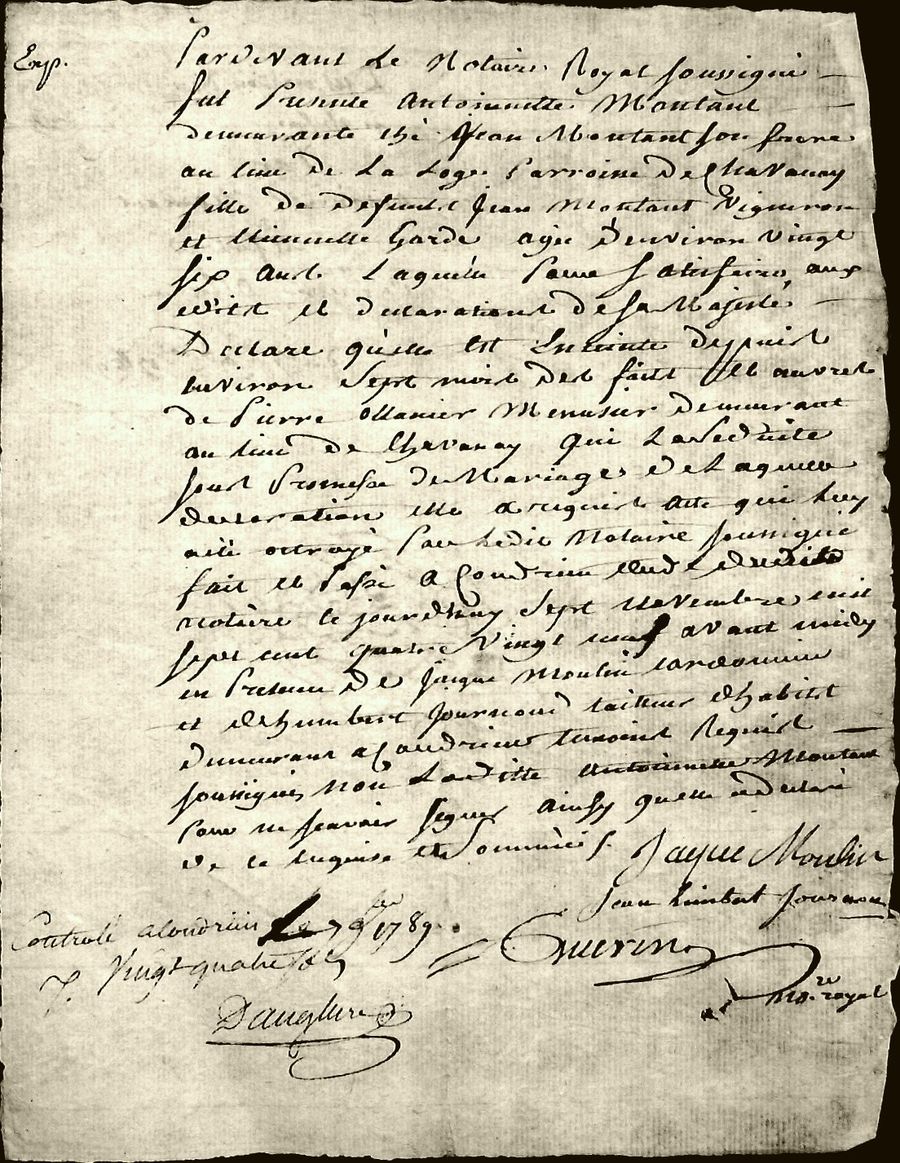 Exp.
Pardevant Le Notaire Royal soussigné
fut Presente Antoinette Montant
demeurante ché Jean Montant son frere
au lieu de La Loge Parroisse De Chavanay
fille de deffunt Jean Montant Vigneron
et Garde agée d'environ vingt
six ans Laquelle Pour satisfaire aux
édits et declarations de sa Majesté
Declare qu'elle est Enceinte deppuis
environ Sept mois des faits et œuvres
de Pierre Menusier demeurant
au lieu de Chavanay qui La seduite
sous Promesse de Mariage de Laquelle
declaration elle a requis acte qui luy
a été octroyé Par Ledit Notaire soussigné
fait et Passé a Condrieu etude dudit
notaire le jourdhuy Sept novembre mil
sept cent quatre vingt neuf avant midy
en Presence de jaque Moulin cordonnier
et de humbert Journoud tailleur d'habits
demeurant a Condrieu temoins Requis
soussignés non Laditte Antoinette Montant
Pour ne sçavoir signer ainsy quelle a declaré
de ce requise et sommée
Jaque Moulin
Jean himbert Journoud
Controlé a Condrieu Le 7 9bre 1789
r. Vingt quatre sols
Guerin
No.re royal
Dauglure